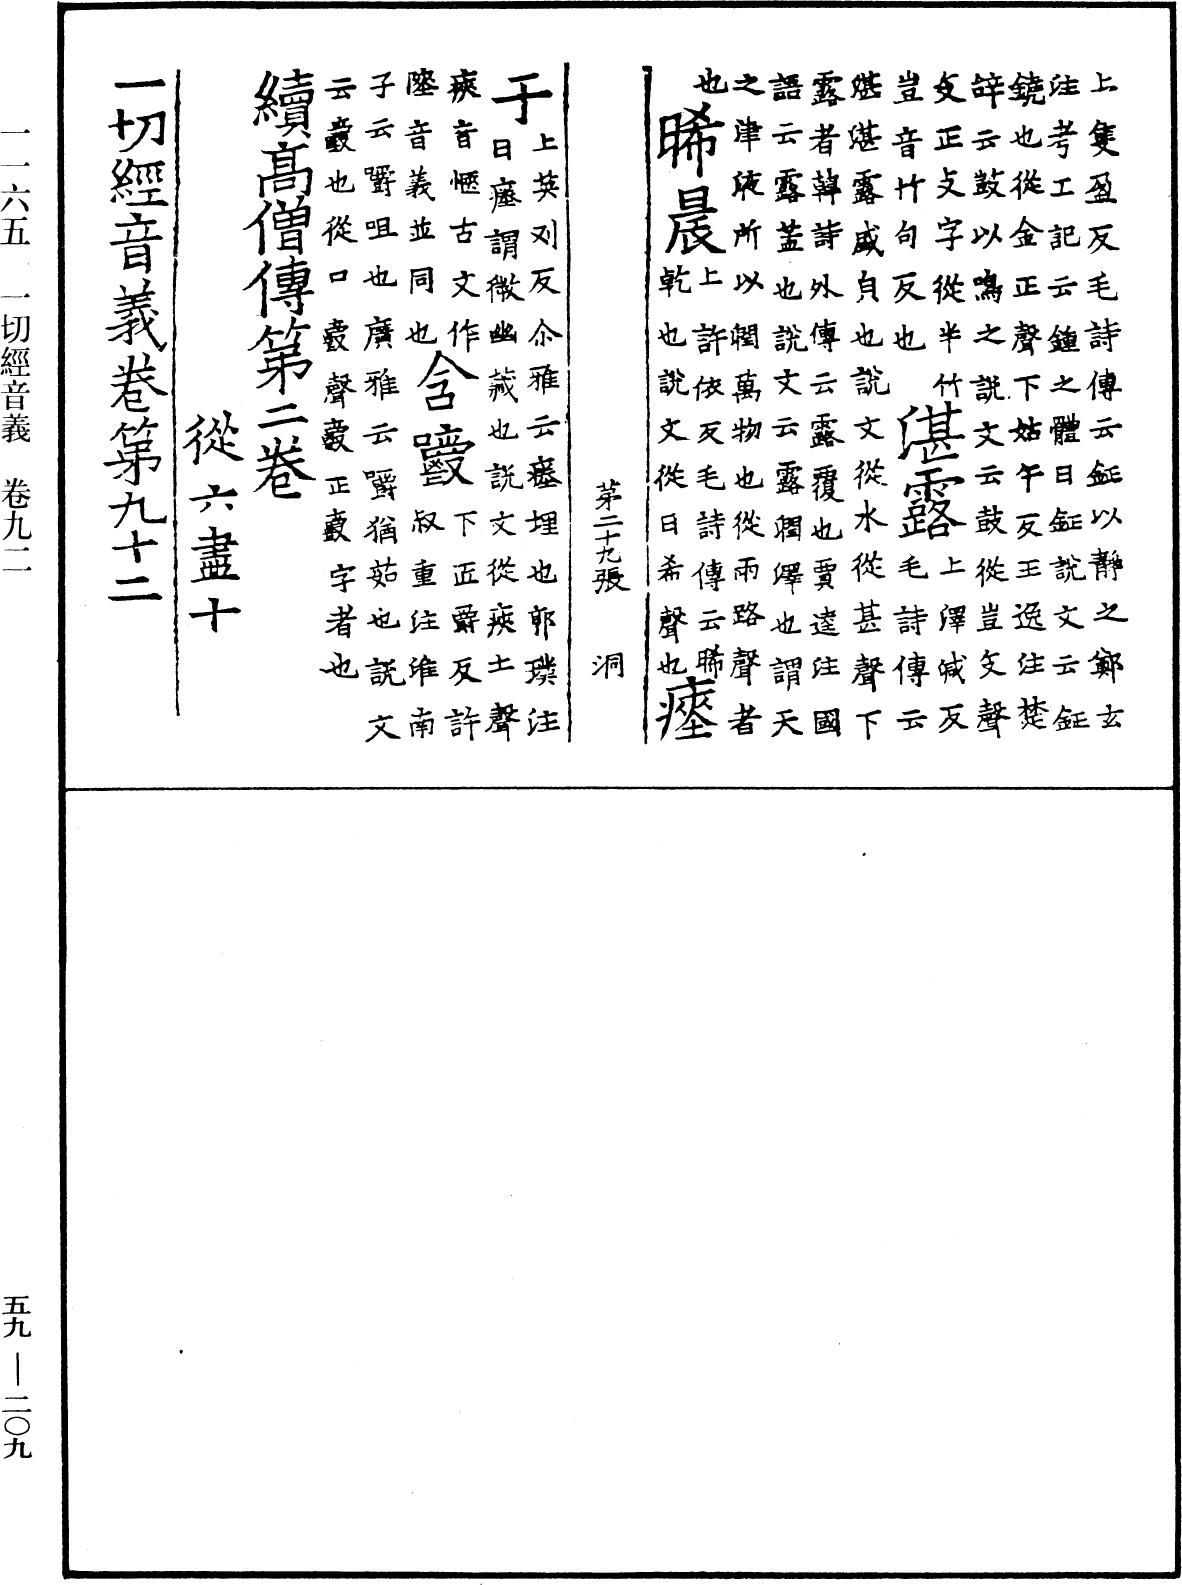 上隻盈反毛詩傳云鉦以靜之鄭玄
注考工記云鍾之體曰鉦說文云鉦
鐃也從金正聲下姑午反王逸注楚
辝云鼓以鳴之說文云鼓從豈攴聲
攴正攴字從半竹
豈音竹句反也
湛露
上澤減反
毛詩傳云
湛湛露盛皃也說文從水從甚聲下
露者韓詩外傳云露覆也賈逵注國
語云露盖也說文云露潤澤也謂天
之津液所以潤萬物也從雨路聲者
也
晞晨
上許依反毛詩傳云晞
乾也說文從日希聲也
瘞
第二十九張 洞
于
上英刈反尒雅云瘞埋也郭璞注
曰瘞謂微幽藏也說文從疾土聲
疾音愜古文作
㙪音義並同也
含嚼
下匠爵反許
叔重注淮南
子云嚼咀也廣雅云嚼猶茹也說文
云嚼也從口聲正字者也
續高僧傳第二卷
從六盡十
一切經音義卷第九十二
一一六五 一切經音義 卷九二
五九—二〇九